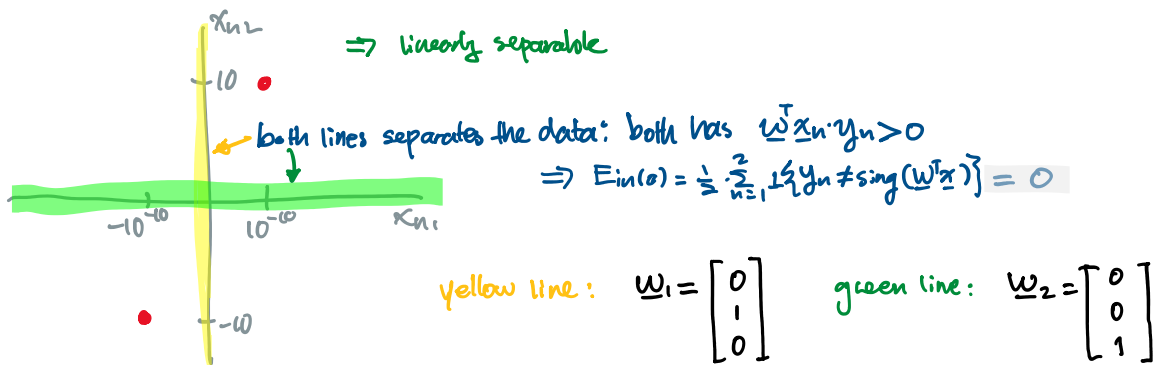 x_{n2}
⇒ linearly separable
10
both lines separates the data: both has w^T x_n · y_n > 0
⇒ Ein(g) = 1/2 · Σ_{n=1}^{2} 1{y_n ≠ sing(w^T x)} = 0
-10^{-10} 10^{-10} x_{n1}
yellow line: w_1 = [0 1 0] green line: w_2 = [0 0 1]
-10